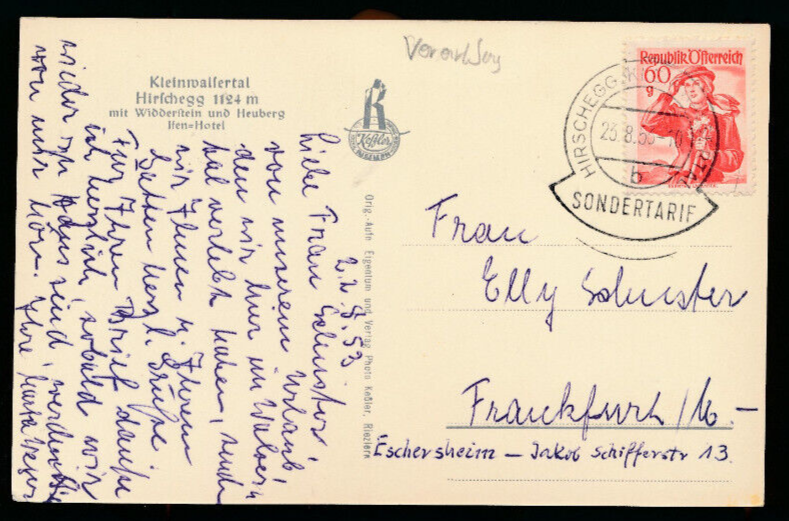 Vorarlberg
Kleinwalsertal
Hirschegg 1124 m
mit Widderstein und Heuberg
Ifen-Hotel
Keßler
Orig.-Aufn Eigentum und Verlag Photo Keßler, Riezlern
Republik Österreich
60
g
HIRSCHEGG
25.8.53
b
SONDERTARIF
22.8.53
Liebe Frau Schuster,
von unserem Urlaub,
den wir hier im Walser-
tal verlebt haben, senden
wir Ihnen u. Ihrem
Gatten herzl. Grüße
Für Ihren Brief danke
ich herzlich, sobald wir
wieder zu Haus sind, werden Sie
von mir hören. Ihre
Frau
Elly Schuster
Frankfurt/M.-
Eschersheim - Jakob Schifferstr 13.